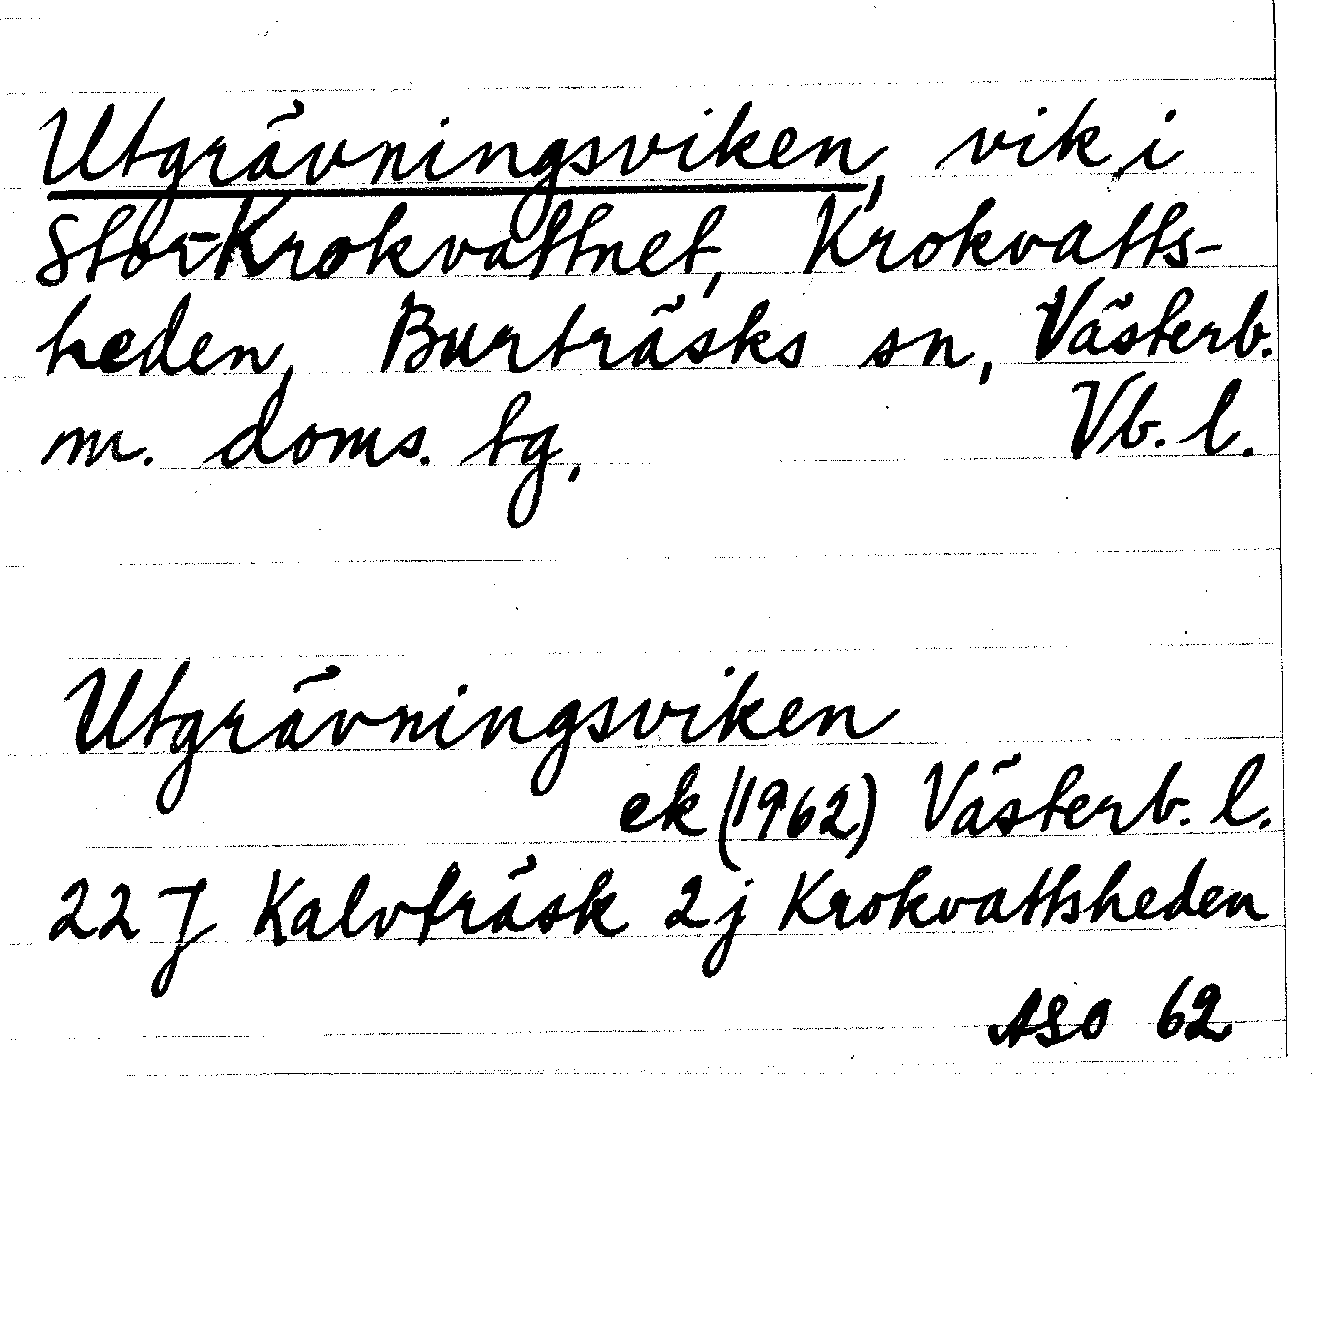 Utgrävningsviken, vik i
Stor-Krokvattnet, Krokvatts-
heden, Burträsks sn, Västerb.
m. doms. tg. Vb. l.
Utgrävningsviken
ek (1962) Västerb. l.
22 J Kalvträsk 2j Krokvattsheden
ASO 62